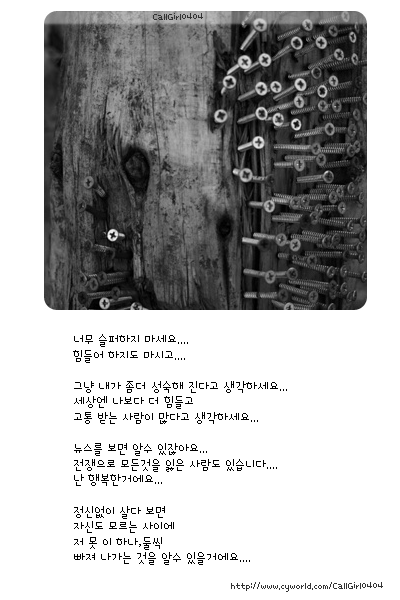 CallGirl0404
너무 슬퍼하지 마세요....
힘들어 하지도 마시고....
그냥 내가 좀더 성숙해 진다고 생각하세요...
세상엔 나보다 더 힘들고
고통 받는 사람이 많다고 생각하세요...
뉴스를 보면 알수 있잖아요...
전쟁으로 모든것을 잃은 사람도 있습니다....
난 행복한거에요...
정신없이 살다 보면
자신도 모르는 사이에
저 못 이 하나,둘씩
빠져 나가는 것을 알수 있을거에요....
http://www.cyworld.com/CallGirl0404